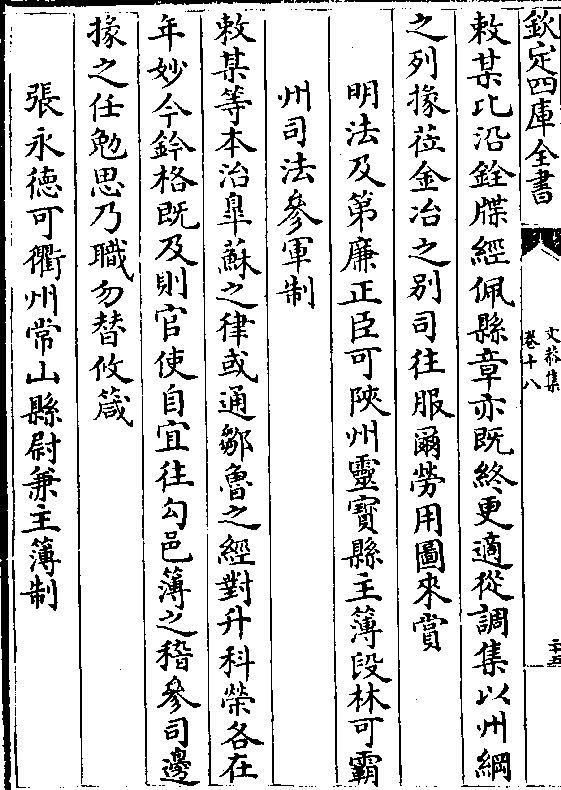 欽定四庫全書
文莊集
卷十八
二十五
敕某比沿銓牒經佩縣章亦既終更適從調集以州綱
之列掾莅金冶之別司往服爾勞用圖來賞
明法及第廉正臣可陜州靈寶縣主薄段林可霸
州司法參軍制
敕某等本治臯蘇之律或通鄒魯之經對升科榮各在
年妙今鈐格既及則官使自宜往勾邑薄之稽參司邊
掾之任勉思乃職勿替攸箴
張永德可衢州常山縣尉兼主薄制